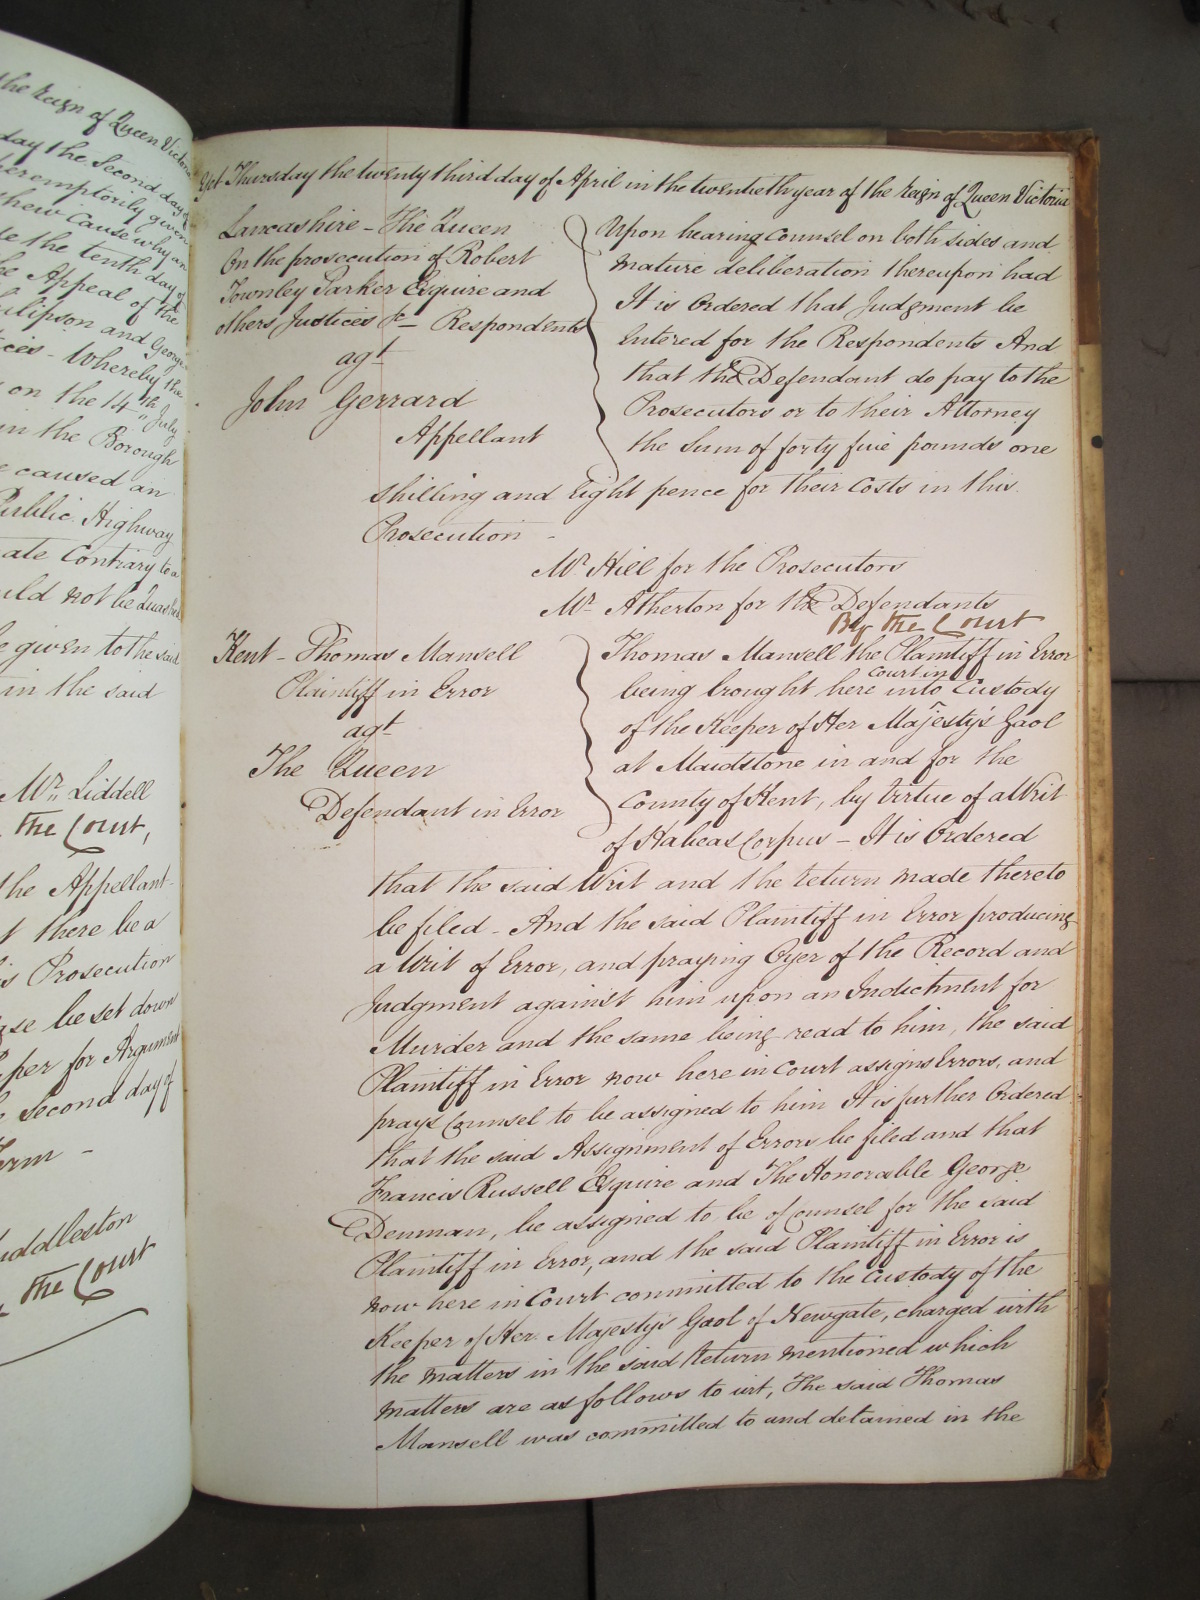 the Reign of Queen Victoria
day the Second day of
peremptorily given
shew Cause why an
the tenth day of
the Appeal of the
and George
Whereby the
on the 14th July
in the Borough
caused an
Public Highway
ate Contrary to a
uld not be Quashed
given to the said
in the said
Mr. Liddell
the Court,
the Appellant
t there be a
is Prosecution
be set down
per for Argument
second day of
Term -
uddleston
the Court
Yet Thursday the twenty third day of April in the twentieth year of the Reign of Queen Victoria
Lancashire - The Queen
On the prosecution of Robert
Townley Parker Esquire and
others Justices &c - Respondents
agt
John Gerrard
Appellant
Upon hearing Counsel on both sides and
mature deliberation thereupon had
It is Ordered that Judgment be
Entered for the Respondents And
that the Defendant do pay to the
Prosecutors or to their Attorney
the Sum of forty five pounds one
shilling and Eight pence for their Costs in this
Prosecution -
Mr. Hill for the Prosecutors
Mr. Atherton for the Defendants
By the Court
Kent - Thomas Mansell
Plaintiff in Error
agt
The Queen
Defendant in Error
Thomas Mansell the Plaintiff in Error
Court in
being brought here into Custody
of the Keeper of Her Majesty's Gaol
at Maidstone in and for the
County of Kent, by Virtue of a Writ
of Habeas Corpus - It is Ordered
that the said Writ and the return made thereto
be filed - And the said Plaintiff in Error producing
a Writ of Error, and praying Oyer of the Record and
Judgment against him upon an Indictment for
Murder and the same being read to him, the said
Plaintiff in Error now here in Court assigns Errors, and
prays Counsel to be assigned to him It is further Ordered
that the said Assignment of Errors be filed and that
Francis Russell Esquire and The Honorable George
Denman, be assigned to be of Counsel for the said
Plaintiff in Error, and the said Plaintiff in Error is
now here in Court committed to the Custody of the
Keeper of Her Majesty's Gaol of Newgate, charged with
the matters in the said Return mentioned which
matters are as follows to wit, The said Thomas
Mansell was committed to and detained in the